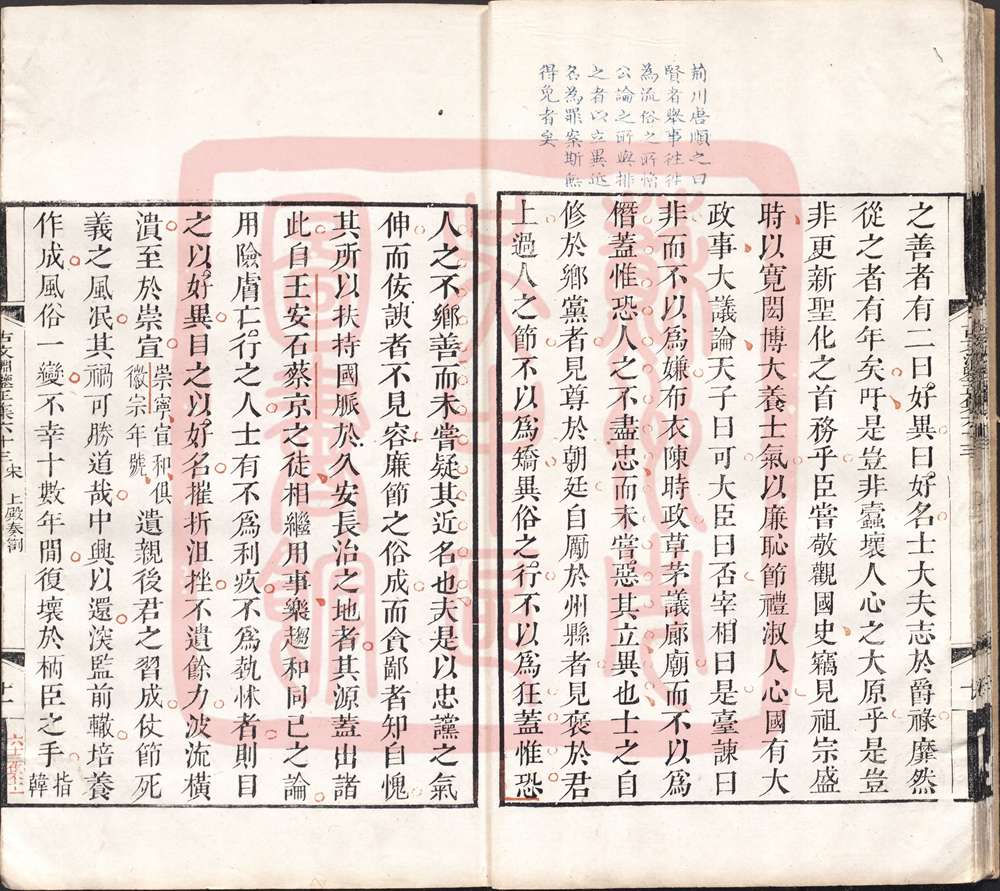 荊川唐順之曰
賢者舉事往往
為流俗之所憎
公論之所與排
之者以立異延
名為罪案斯無
得免者矣
之善者有二曰好異曰好名士大夫志於爵祿靡然
從之者有年矣吁是豈非蠹壞人心之大原乎是豈
非更新聖化之首務乎臣嘗敬觀國史竊見祖宗盛
時以寬閎博大養士氣以廉恥節禮淑人心國有大
政事大議論天子曰可大臣曰否宰相曰是臺諫曰
非而不以爲嫌布衣陳時政草茅議廊廟而不以爲
僭蓋惟恐人之不盡忠而未嘗惡其立異也士之自
修於鄉黨者見尊於朝廷自厲於州縣者見褒於君
上過人之節不以爲矯異俗之行不以爲狂蓋惟恐
人之不鄉善而未嘗疑其近名也夫是以忠讜之氣
伸而佞諛者不見容廉節之俗成而貪鄙者知自愧
其所以扶持國脈於久安長治之地者其源蓋出諸
此自王安石蔡京之徒相繼用事樂趨和同已之論
用險膚亡行之人士有不爲利疚不爲埶怵者則目
之以好異目之以好名摧折沮挫不遺餘力波流橫
潰至於崇宣崇寧宣和俱徽宗年號遺親後君之習成仗節死
義之風泯其禍可勝道哉中興以還深監前轍培養
作成風俗一變不幸十數年間復壞於柄臣之手指韓
古文淵鑒正集六十三 宋 上殿奏劄